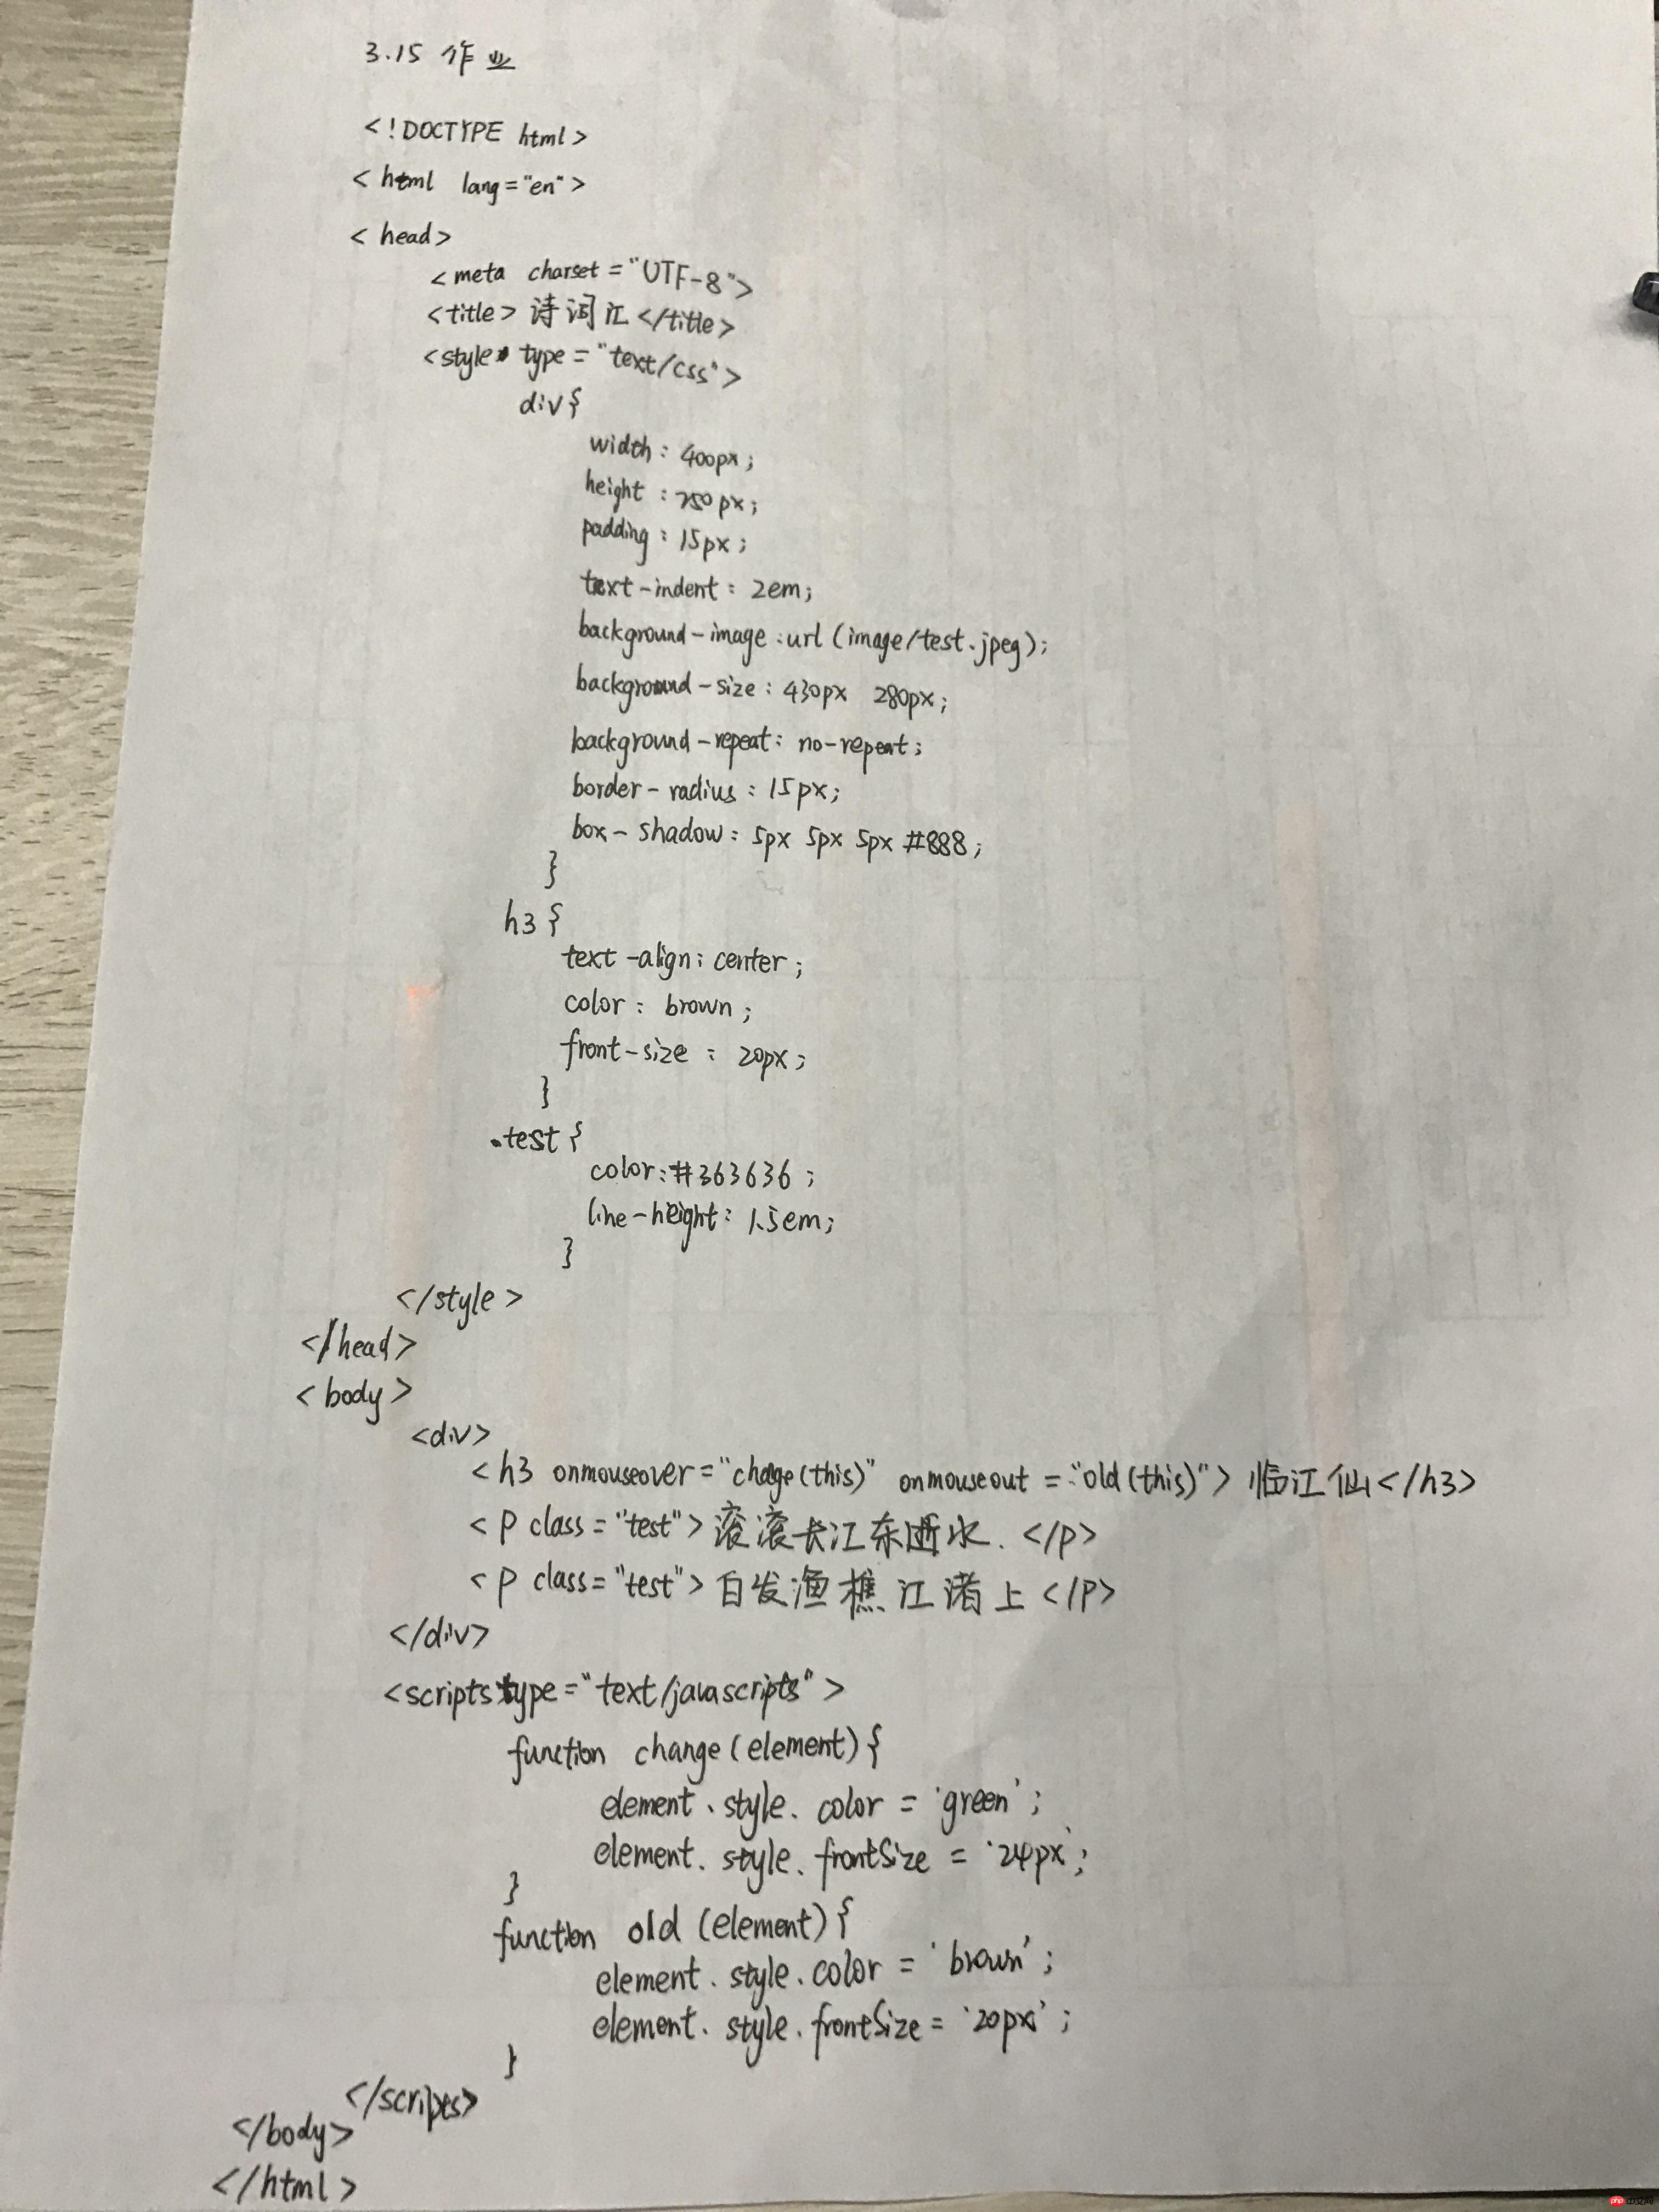 3.15 作业
<!DOCTYPE html>
<html lang="en">
<head>
<meta charset="UTF-8">
<title>诗词汇</title>
<style type="text/css">
div{
width: 400px;
height: 250px;
padding: 15px;
text-indent: 2em;
background-image:url(image/test.jpeg);
background-size: 430px 280px;
background-repeat: no-repeat;
border-radius: 15px;
box-shadow: 5px 5px 5px #888;
}
h3{
text-align: center;
color: brown;
front-size: 20px;
}
.test{
color:#363636;
line-height: 1.5em;
}
</style>
</head>
<body>
<div>
<h3 onmouseover="change(this)" onmouseout="old(this)">临江仙</h3>
<p class="test">滚滚长江东逝水.</p>
<p class="test">白发渔樵江渚上</p>
</div>
<scripts type="text/javascripts">
function change(element){
element.style.color = 'green';
element.style.frontSize = '24px';
}
function old(element){
element.style.color = 'brown';
element.style.frontSize = '20px';
}
</scripes>
</body>
</html>
php 中文网